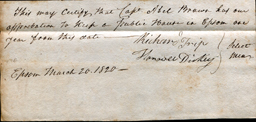 This may Certify, that Capt Abel Brown has our
approbation to Keep a Public House in Epsom one
year from this date —
Select
Hanover Dickey
men
Epsom March 20. 1820 —